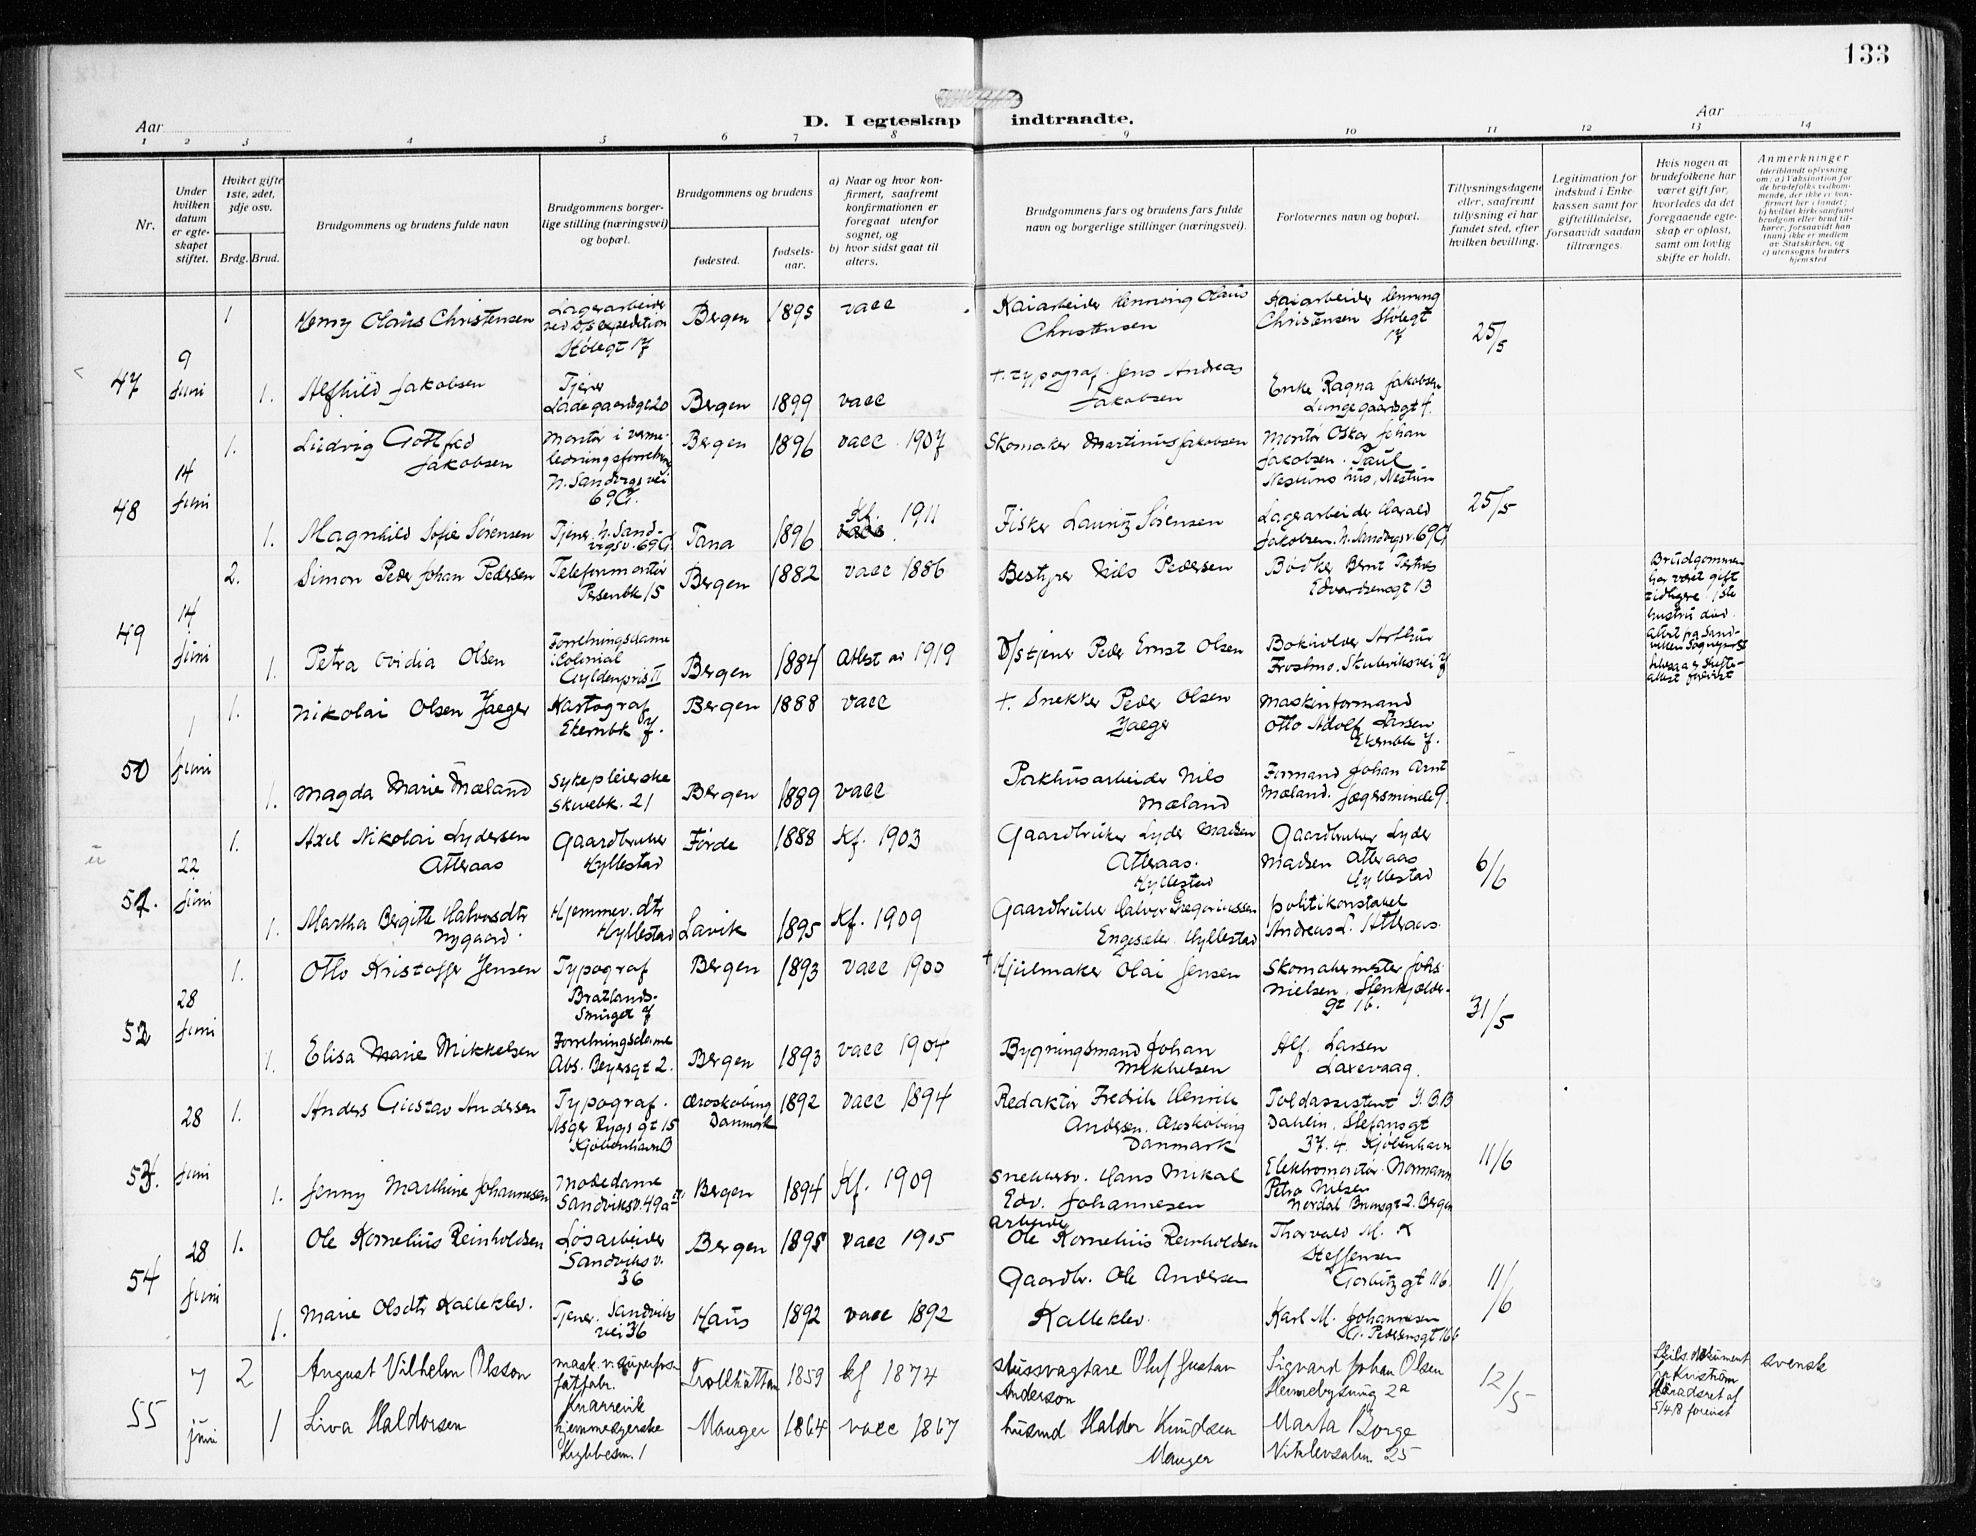 133
D. I egteskap indtraadte.
Aar
Aar
1 2 3 4 5 6 7 8 9 10 11 12 13 14
Nr.
Under hvilken datum er egteskapet stiftet.
Hviket gifte 1ste, 2det, 3dje osv.
Brdg. Brud.
Brudgommens og brudens fulde navn
Brudgommens borgerlige stilling (næringsvei) og bopæl.
Brudgommens og brudens
fødested.
fødselsaar.
a) Naar og hvor konfirmert, saafremt konfirmationen er foregaat utenfor sognet, og
b) hvor sidst gaat til alters.
Brudgommens fars og brudens fars fulde navn og borgerlige stillinger (næringsvei).
Forlovernes navn og bopæl.
Tillysningsdagene eller, saafremt tillysning ei har fundet sted, efter hvilken bevilling.
Legitimation for indskud i Enkekassen samt for giftetilladelse, forsaavidt saadan tiltrænges.
Hvis nogen av brudefolkene har været gift før, hvorledes da det foregaaende egteskap er opløst, samt om lovlig skifte er holdt.
Anmerkninger
47
9 Juni
1
Henry Olaus Christensen
Lagerarbeider
Bergen
1895
vacc
Kaiarbeider Henning Olaus
Christensen
Kaiarbeider Henning
Christensen Stølegt
17
25/5
1.
Alfhild Jakobsen
Tjener
Ladegaardsgt 20
Bergen
1899
vacc
+ Typograf Jens Andreas
Jakobsen
Enke Ragna Jakobsen
Lungegaardsgt 4.
48
14 Juni
1.
Ludvig Gottfred
Jakobsen
Montør i varme-
ledningsforretning
N. Sandvigsvei
69 G.
Bergen
1896
vacc 1907
Skomaker Martinus Jakobsen
Montør Oskar Johan
Jakobsen. Paul
Nestuns hus, Nestun
25/5
1.
Magnhild Sofie Sørensen
Tjener. N. Sand-
vigsv. 69 G.
Tana
1896
Kf. 1911
Fisker Lauritz Sørensen
Lagerarbeider Harald
Jakobsen. N. Sandvgsv. 69 G
49
14 Juni
2.
Simon Peder Johan Pedersen
Telefonmontør
Persenbk 15
Bergen
1882
vacc 1886
Bestyrer Nils Pedersen
Bødker Bernt
Edvardsensgt 13
Brudgommen
har været gift
tidligere. 1ste
hustru død.
1.
Petra Ovidia Olsen
Forretningsdame
i Colonial
Gyldenpris II
Bergen
1884
Attest av 1919
Peder Ernst Olsen
Bokholder Arthur
Skuteviksvei 7
50
1 Juni
1.
Nikolai Olsen Jaeger
Kartograf
Ekernbk 7.
Bergen
1888
vacc
+ Snekker Peder Olsen
Jaeger
Maskinformand
Otto Adolf Larsen
Ekernbk 7.
1.
Magda Marie Mæland
Sykepleierske
Skivebk. 21
Bergen
1889
vacc
Pakhusarbeider Nils
Mæland
Formand Johan Arnt
Mæland. Jægersminde 9.
51.
22 Juni
1.
Axel Nikolai Lydersen
Atteraas
Gaardbruker
Hyllestad
Førde
1888
Kf. 1903
Gaardbruker Lyder Madsen
Atteraas.
Hyllestad
Gaardbruker Lyder
Madsen Atteraas
Hyllestad
6/6
1.
Martha Bergitte Halvorsdtr
Nygaard.
Hjemmev. dtr
Hyllestad
Lavik
1895
Kf. 1909
Gaardbruker Halvor Gregoriussen
Engesæter. Hyllestad
Politikonstabel
Andreas L. Atteraas.
52
28 Juni
1.
Otto Kristoffer Jensen
Typograf
Bratlands-
Smuget 7
Bergen
1893
vacc 1900
+ Hjulmaker Olai Jensen
Skomakermester Johs.
Nielsen. Stenkjelder-
gt 16.
31/5
1.
Elisa Marie Mikkelsen
Forretningsdame
Abs. Beyersgt 2.
Bergen
1893
vacc 1904
Bygningsmand Johan
Mikkelsen
Alf. Larsen
Laxevaag.
53.
28 Juni
1.
Anders Gustav Andersen
Typograf.
Asger Rygs gt 15
Kjøbenhavn B
Æroskøbing
Danmark
1892
vacc 1894
Redaktør Fredrik Henrik
Andersen. Ærøskøbing
Danmark
Toldassistent
Dahlin, Stefansgt
37. 4. Kjøbenhavn
11/6
1.
Jenny Marthine Johannesen
Modedame
Sandviksv. 49a
Bergen
1894
Kf. 1909
Snekkersv. Hans Mikal
Edv. Johannesen
Elektromontør Normann
Petro Nilsen
Nordal Brunsgt 2. Bergen
54
28 Juni
1.
Ole Kornelius Reinholdsen
Løsarbeider
Sandviksv.
36
Bergen
1895
vacc 1905
arbeider
Ole Kornelius Reinholdsen
Thorvald M. K
Steffensen
Gorbitzgt 116.
11/6
1.
Marie Olsdtr Kalleklev.
Tjener. Sandviks
vei 36
Haus
1892
vacc 1892
Gaardbr. Ole Andersen
Kalleklev.
Karl M. Johannesen
55
7 juni
2
August Vilhelm Olsson
mask. v. superfos-
fatfabr.
Knarrevik
Trollhättan
1859
kf 1874
slussvagtare Oluf Gustav
Anderson
Sigvard Johan Olsen
2a
12/5
svensk
1
Liva Haldorsen
hjemmesyerske
Manger
1864
vacc 1867
husmd Haldor Knudsen
Manger
Marta Borge
25